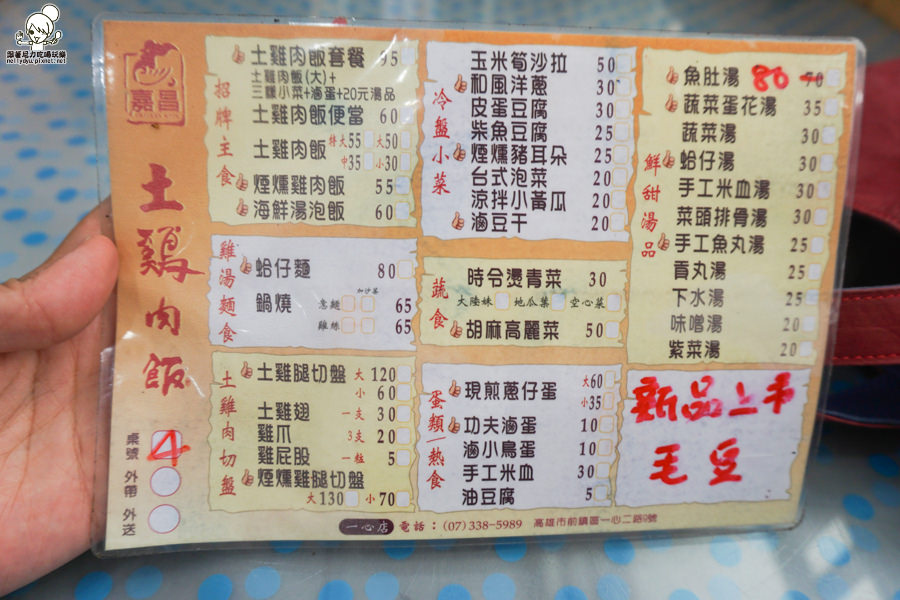 跟著尼力吃喝玩樂
nellydyu.pixnet.net
嘉昌
土鷄肉飯
桌號 4
外帶
外送
招牌主食
土雞肉飯套餐 95
土雞肉飯(大)+
三樣小菜+滷蛋+20元湯品
土雞肉飯便當 60
土雞肉飯 特大55 大50
中35 小30
煙燻雞肉飯 55
海鮮湯泡飯 60
雞湯麵食
蛤仔麵 80
加沙茶
鍋燒 意麵 65
雞絲 65
土雞肉切盤
土雞腿切盤 大 120
小 60
土雞翅 一支 30
雞爪 3支 20
雞屁股 一粒 5
煙燻雞腿切盤
大130 小70
冷盤小菜
玉米筍沙拉 50
和風洋蔥 30
皮蛋豆腐 30
柴魚豆腐 25
煙燻豬耳朵 25
台式泡菜 20
涼拌小黃瓜 20
滷豆干 20
蔬食
時令燙青菜 30
大陸妹 地瓜葉 空心菜
胡麻高麗菜 50
蛋類/熱食
現煎蔥仔蛋 大60
小35
功夫滷蛋 10
滷小鳥蛋 10
手工米血 30
油豆腐 5
鮮甜湯品
魚肚湯 80 70
蔬菜蛋花湯 35
蔬菜湯 30
蛤仔湯 30
手工米血湯 30
菜頭排骨湯 30
手工魚丸湯 25
貢丸湯 25
下水湯 25
味噌湯 20
紫菜湯 20
新品上市
毛豆
一心店 電話:(07)338-5989 高雄市前鎮區一心二路9號